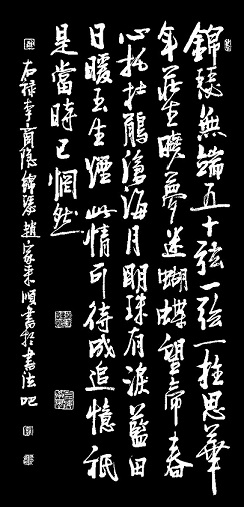 錦瑟無端五十弦一弦一柱思華
年莊生曉夢迷蝴蝶望帝春
心托杜鵑滄海月明珠有淚藍田
日暖玉生煙此情可待成追憶祇
是當時已惘然
右錄李商隱錦瑟趙家順書於書法吧